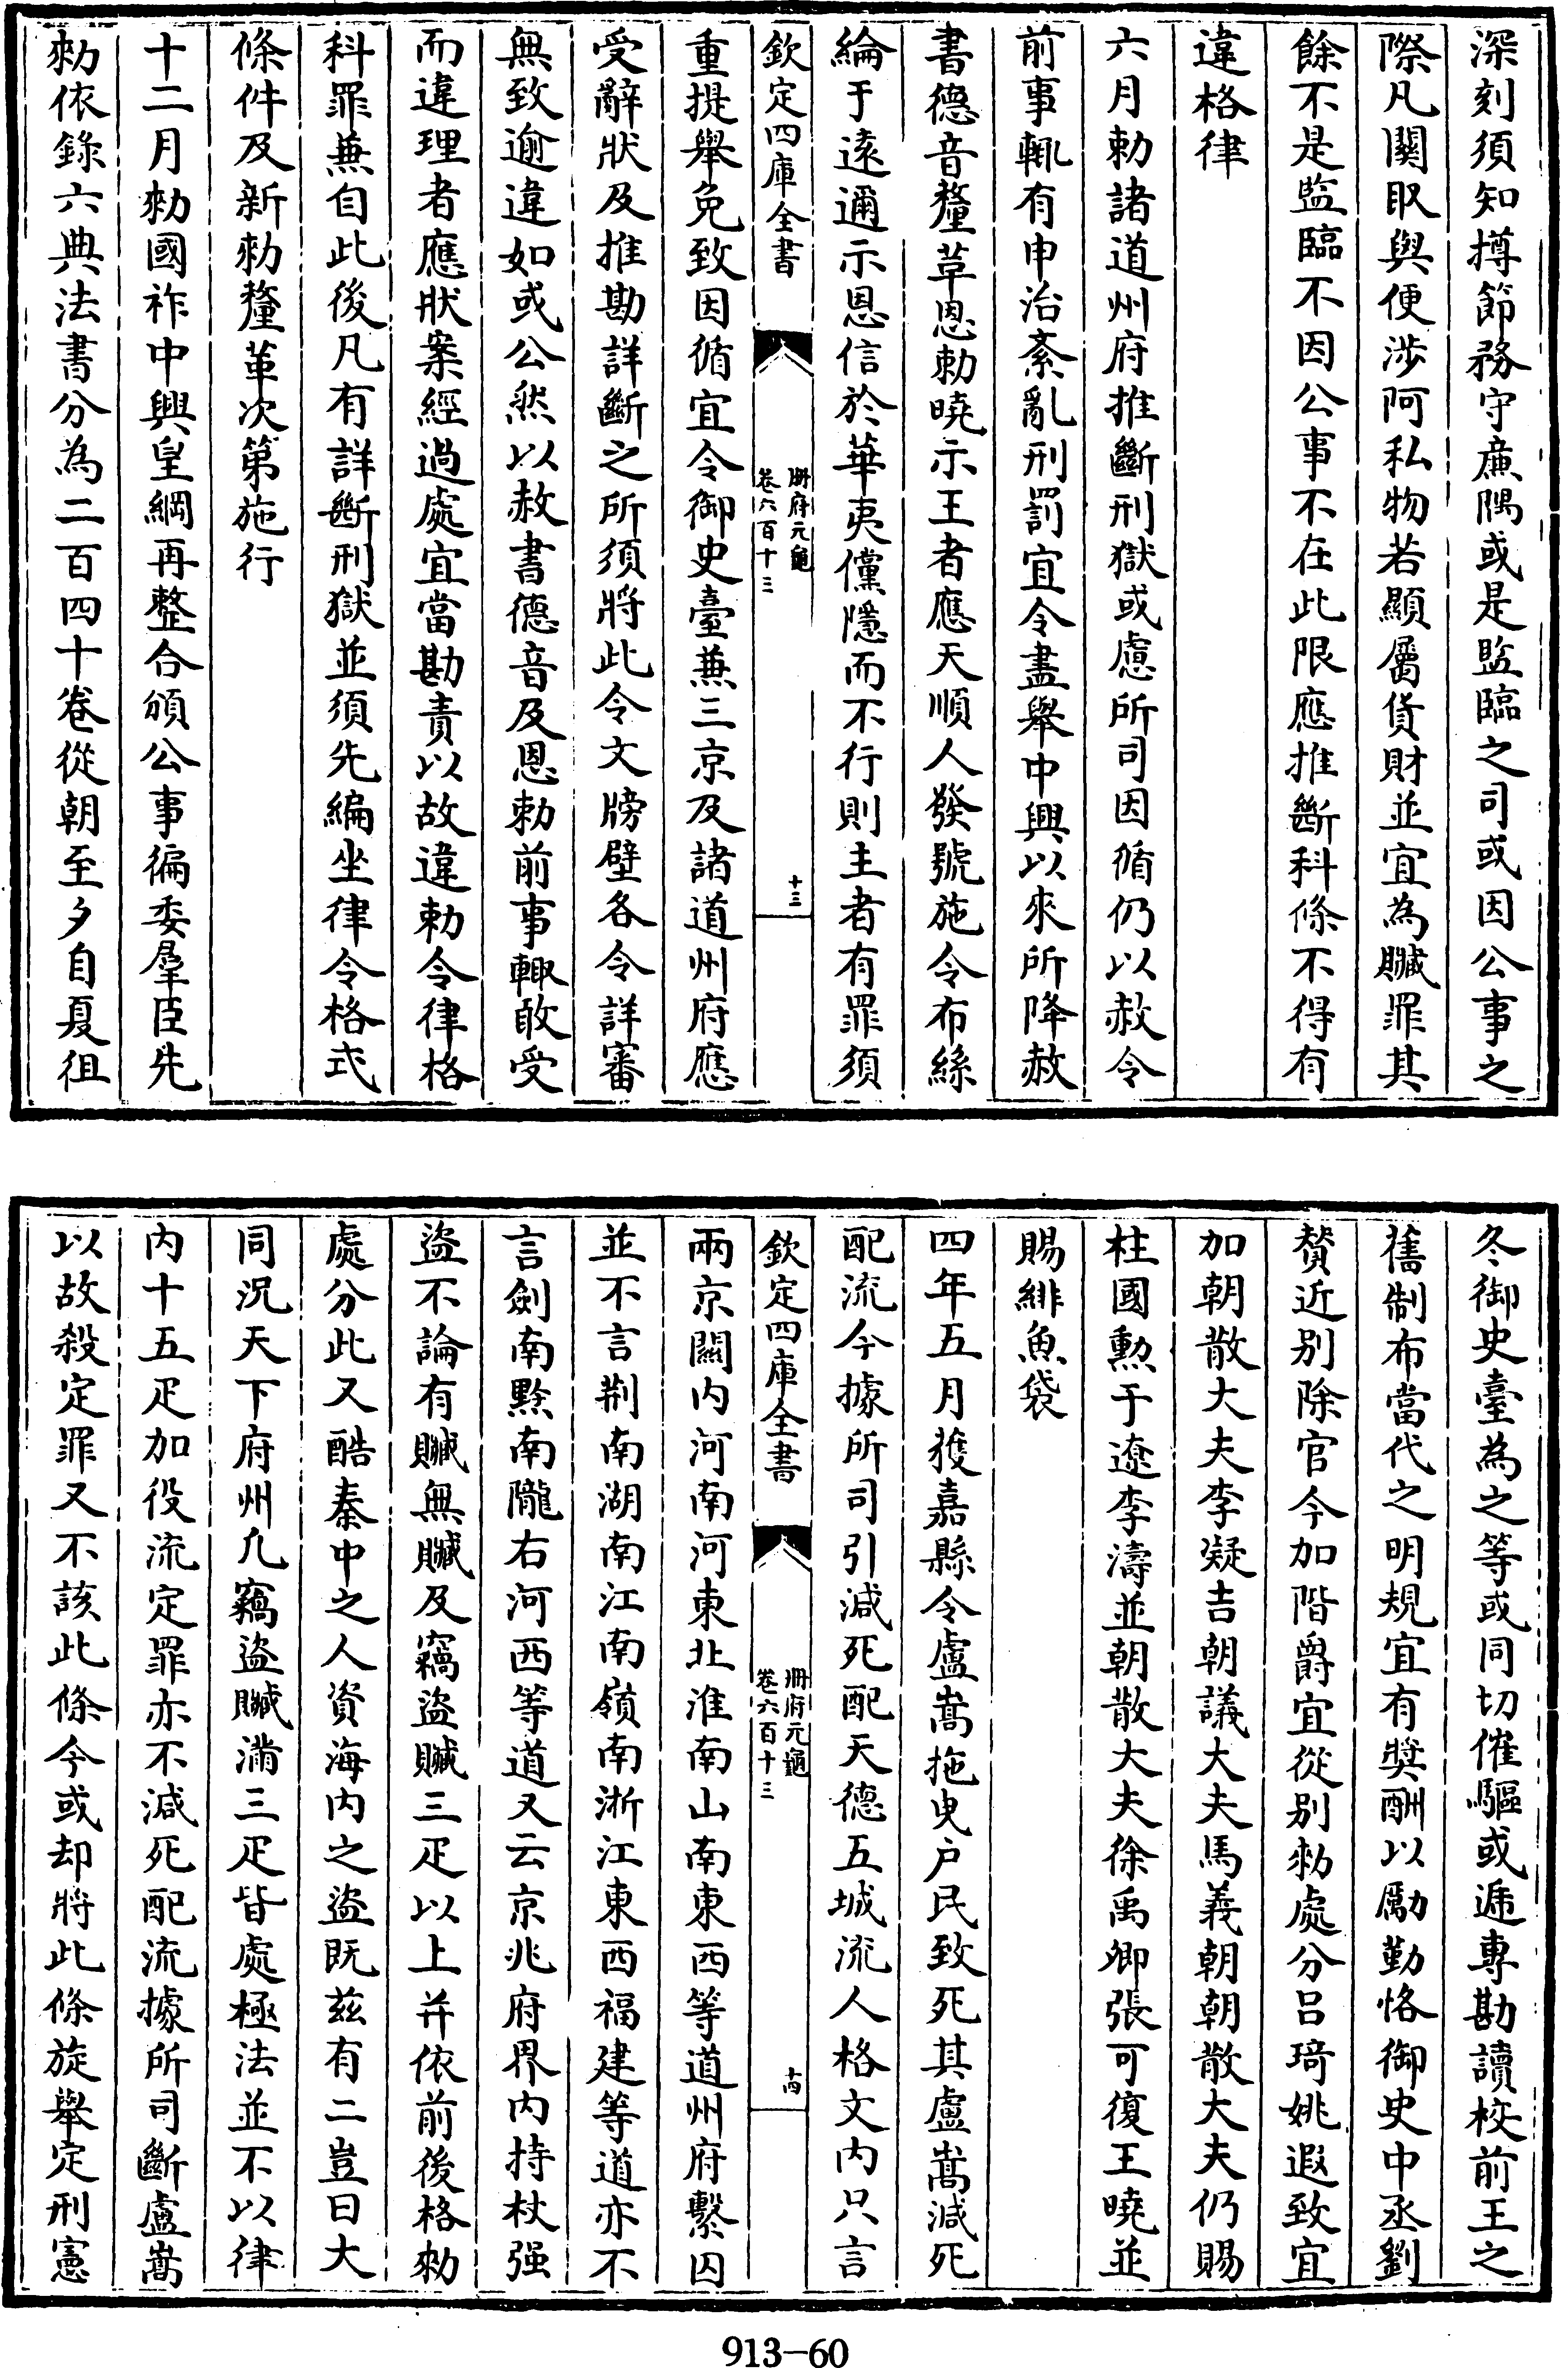 深刻須知撙節務守廉隅或是監臨之司或因公事之
際凡關取與便涉阿私物若顯屬貨財並宜為贓罪其
餘不是監臨不因公事不在此限應推斷科條不得有
違格律
六月勅諸道州府推斷刑獄或慮所司因循仍以赦令
前事輒有申治紊亂刑罰宜令盡舉中興以來所降赦
書德音釐革恩勅曉示王者應天順人發號施令布絲
綸于遠邇示恩信於華夷儻隱而不行則主者有罪須
欽定四庫全書
冊府元龜
卷六百十三
十三
重提舉免致因循宜令御史臺兼三京及諸道州府應
受辭狀及推勘詳斷之所須將此令文牓壁各令詳審
無致逾違如或公然以赦書德音及恩勅前事輒敢受
而違理者應狀案經過處宜當勘責以故違勅令律格
科罪兼自此後凡有詳斷刑獄並須先編坐律令格式
條件及新勑釐革次第施行
十二月勑國祚中興皇綱再整合頒公事徧委羣臣先
勑依錄六典法書分為二百四十卷從朝至夕自夏徂
冬御史臺為之等或同切催驅或遞專勘讀校前王之
舊制布當代之明規宜有獎酬以勵勤恪御史中丞劉
贊近别除官今加階爵宜從别勑處分吕琦姚遐致宜
加朝散大夫李凝吉朝議大夫馬義朝朝散大夫仍賜
柱國勲于遼李濤並朝散大夫徐禹卿張可復王曉並
賜緋魚袋
四年五月獲嘉縣令盧嵩拖曳户民致死其盧嵩減死
配流今據所司引減死配天德五城流人格文内只言
欽定四庫全書
冊府元龜
卷六百十三
十四
兩京關内河南河東北淮南山南東西等道州府繫囚
並不言荆南湖南江南嶺南浙江東西福建等道亦不
言劍南黔南隴右河西等道又云京兆府界内持杖强
盜不論有贓無贓及竊盜贓三疋以上并依前後格勑
處分此又酷秦中之人資海内之盜既兹有二豈曰大
同況天下府州凡竊盜贓滿三疋皆處極法並不以律
内十五疋加役流定罪亦不減死配流據所司斷盧嵩
以故殺定罪又不該此條今或却將此條旋舉定刑憲
913-60